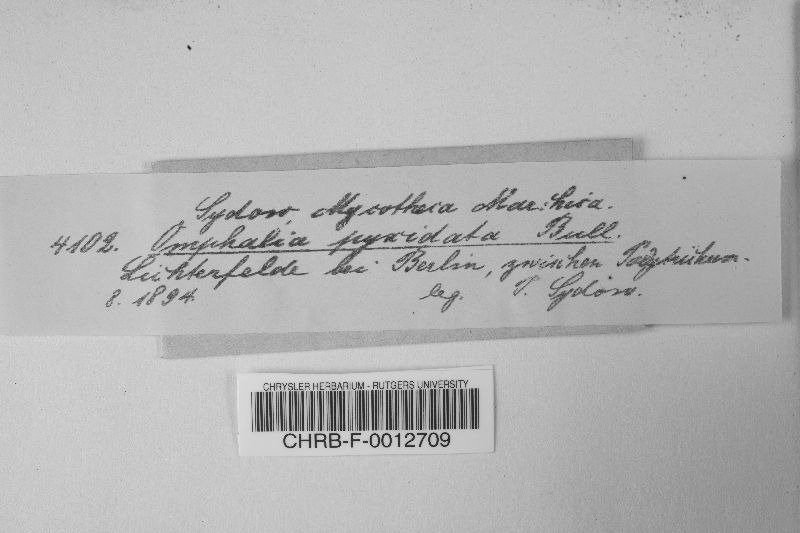 Sydow, Mycotheca Marchica.
4102. Omphalia pyxidata Bull.
Lichterfelde bei Berlin, zwischen Polytrichum.
8. 1894. leg. P. Sydow.
CHRYSLER HERBARIUM - RUTGERS UNIVERSITY
CHRB-F-0012709